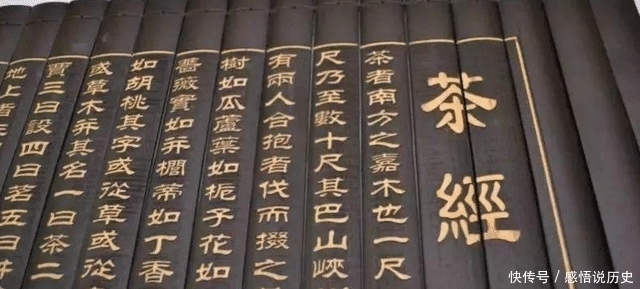 茶經
茶者南方之嘉木也一尺
尺乃至數十尺其巴山峽
有兩人合抱者伐而掇之
樹如瓜蘆葉如梔子花如
薔薇實如并櫚蒂如丁香
如胡桃其字或從草或從
或草木并其名一曰茶二
賈三曰設四曰茗五曰
地上者
快传号 / 感悟说历史